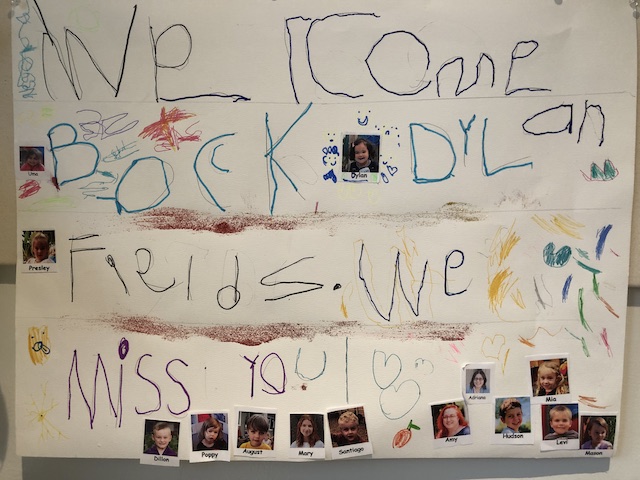 WE lCOme
BOCK DYLan
Fields. We
Miss YOU!
Uno
Dylan
Presley
Adriana
Mia
Dillon
Poppy
August
Mary
Santiago
Amy
Hudson
Levi
Mason